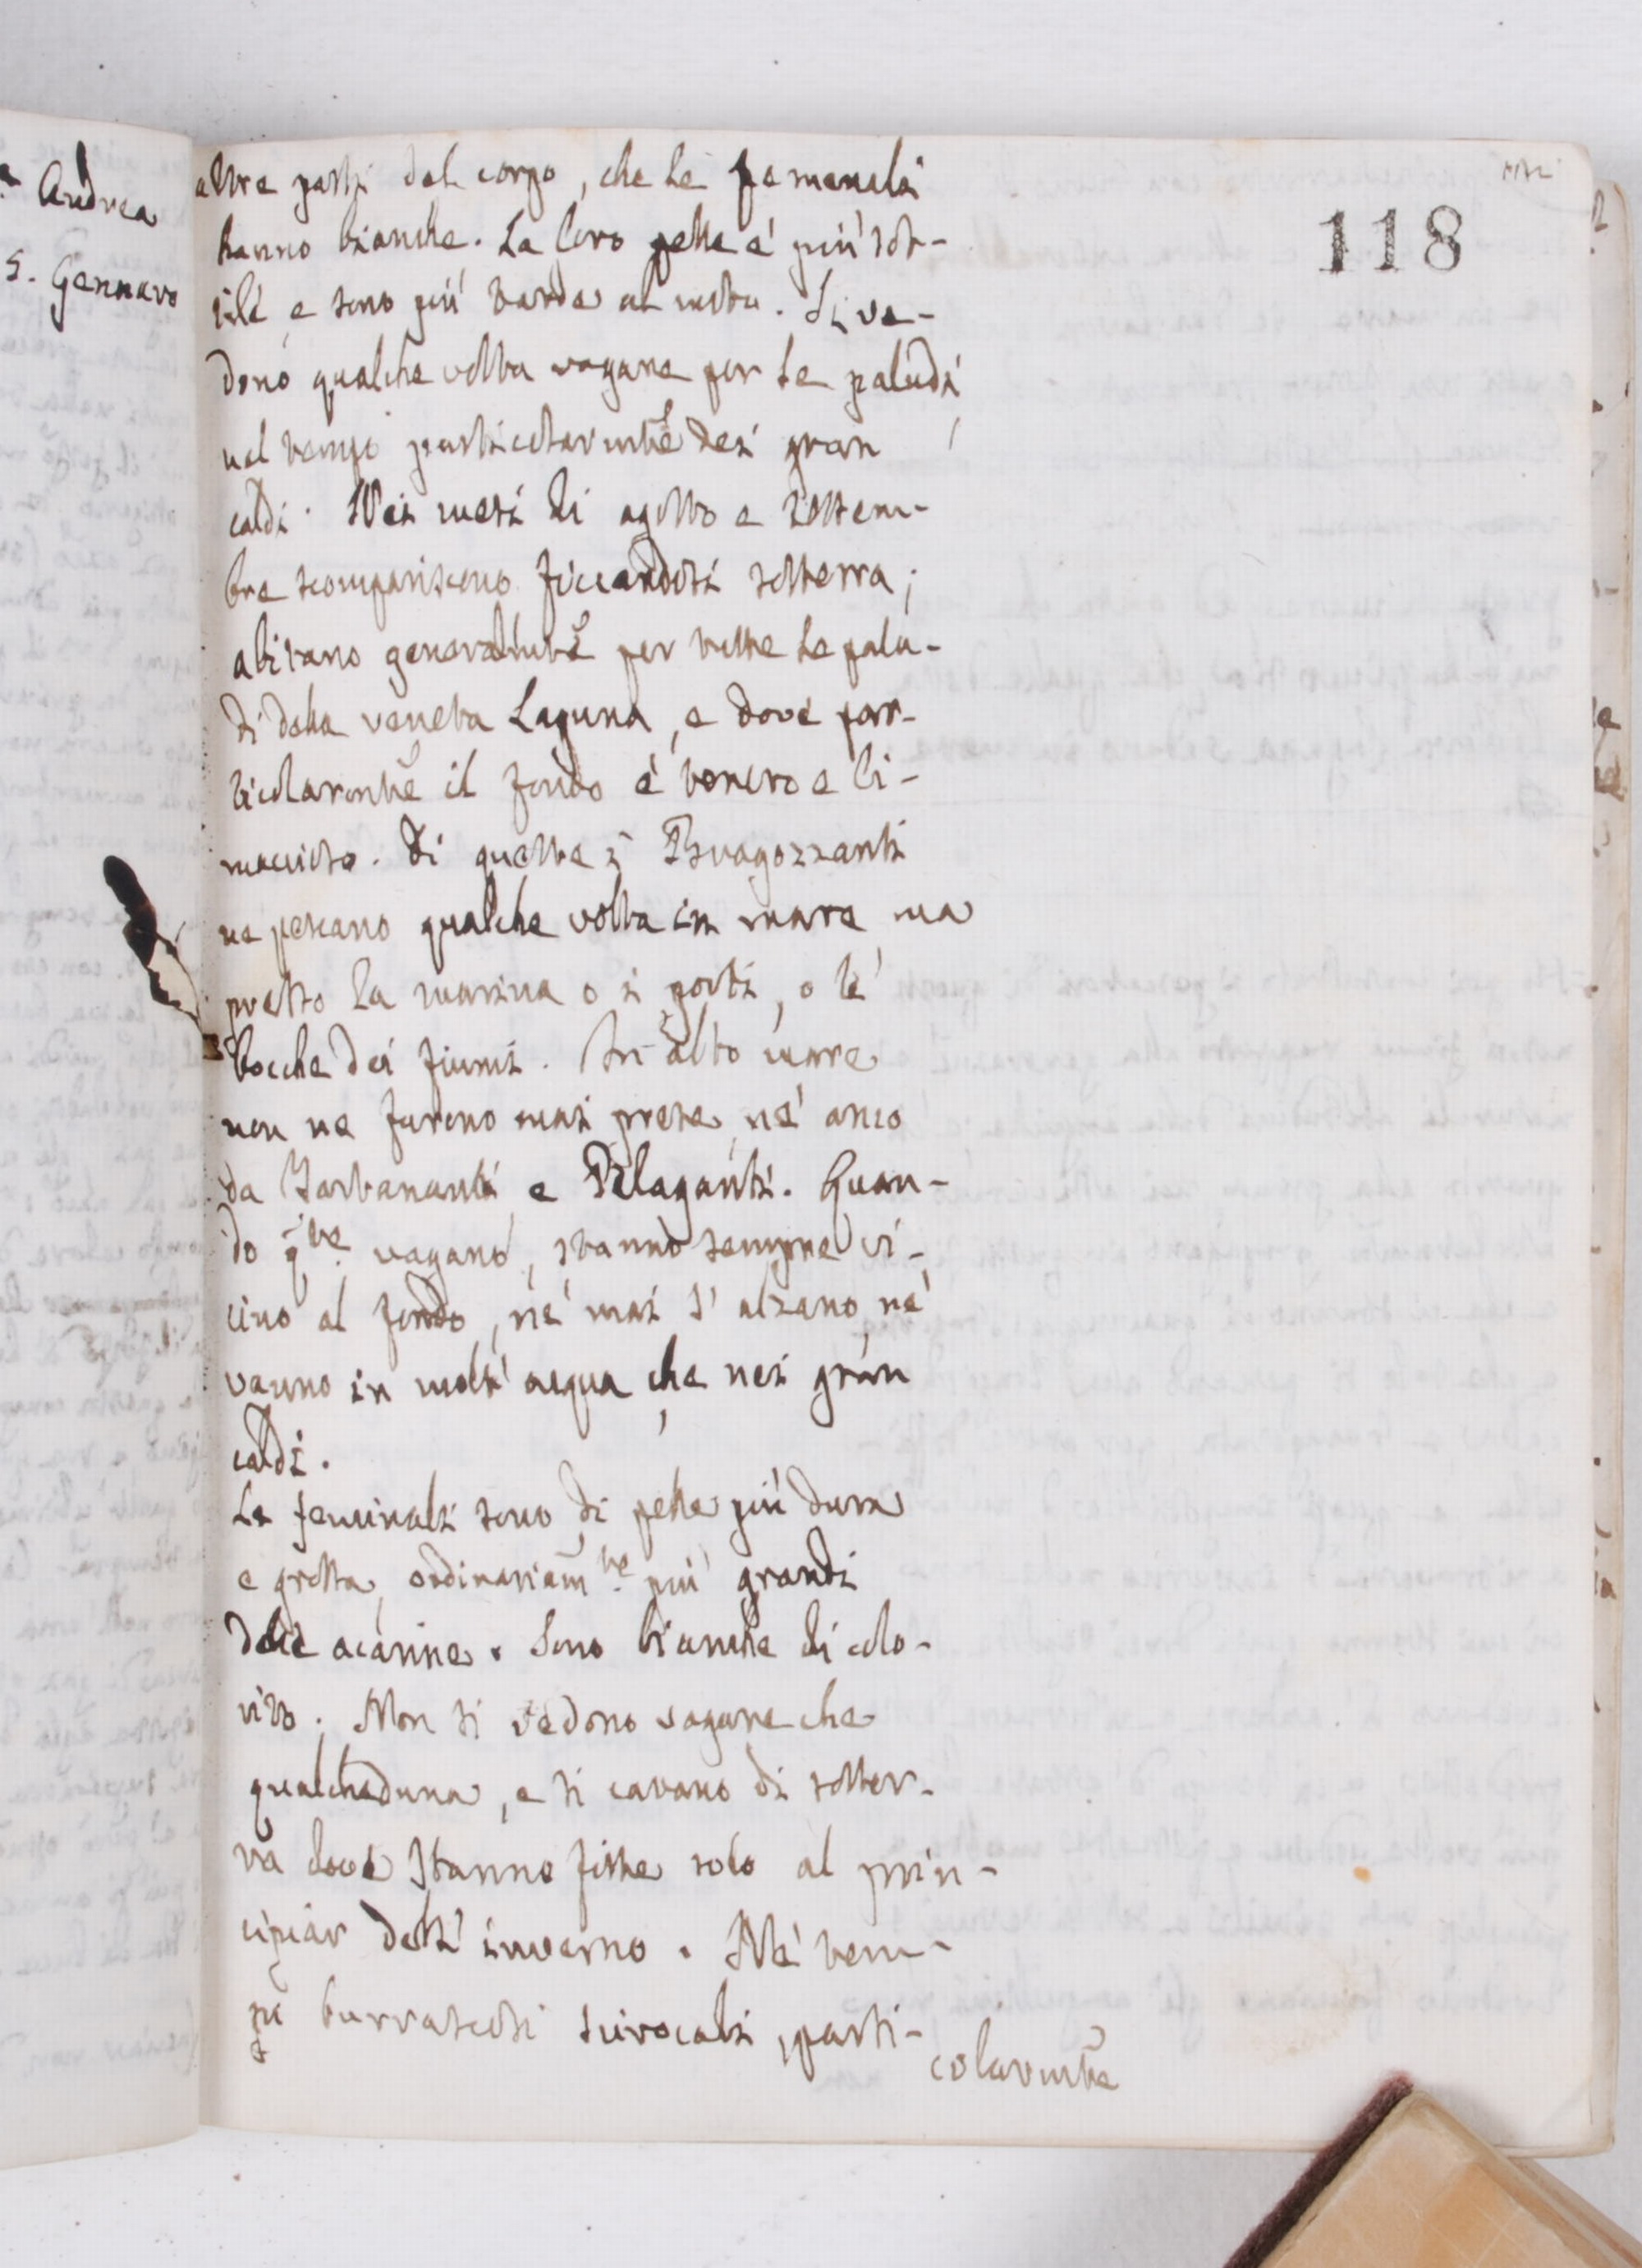 Andrea
S. Gennaro
118
altre parti del corpo, che le femenali
hanno bianche. La loro pelle è più sot-
tile, e sono più tarde al moto. Si ve-
dono qualche volta vagare per le paludi
nel tempo particolarmte dei gran
caldi. Nei mesi di agosto e settem-
bre scompariscono ficcandosi sotterra;
abitano generalmte per tutte le palu-
di della veneta Laguna, e dove par-
ticolarmte il fondo è tenero e li-
maccioso. Di queste i Bragozzanti
ne pescano qualche volta in mare, ma
presso la marina o i porti, o le
bocche dei fiumi. In alto mare
non ne furono mai prese, nè anco
da Tartananti e Pielaganti. Quan-
do qte vagano, stanno sempre vi-
cino al fondo, nè mai s'alzano, nè
vanno in molt'acqua che nei gran
caldi.
Le feminali sono di pelle più dura
e grossa, ordinariamte più grandi
delle acarine. Sono bianche di colo-
rito. Non si vedono vagare che
qualcheduna, e si cavano di sotter-
ra dove stanno fitte solo al prin-
cipiar dell'inverno. Ne' tem-
pi burrascosi sirocali, parti-
colarmte